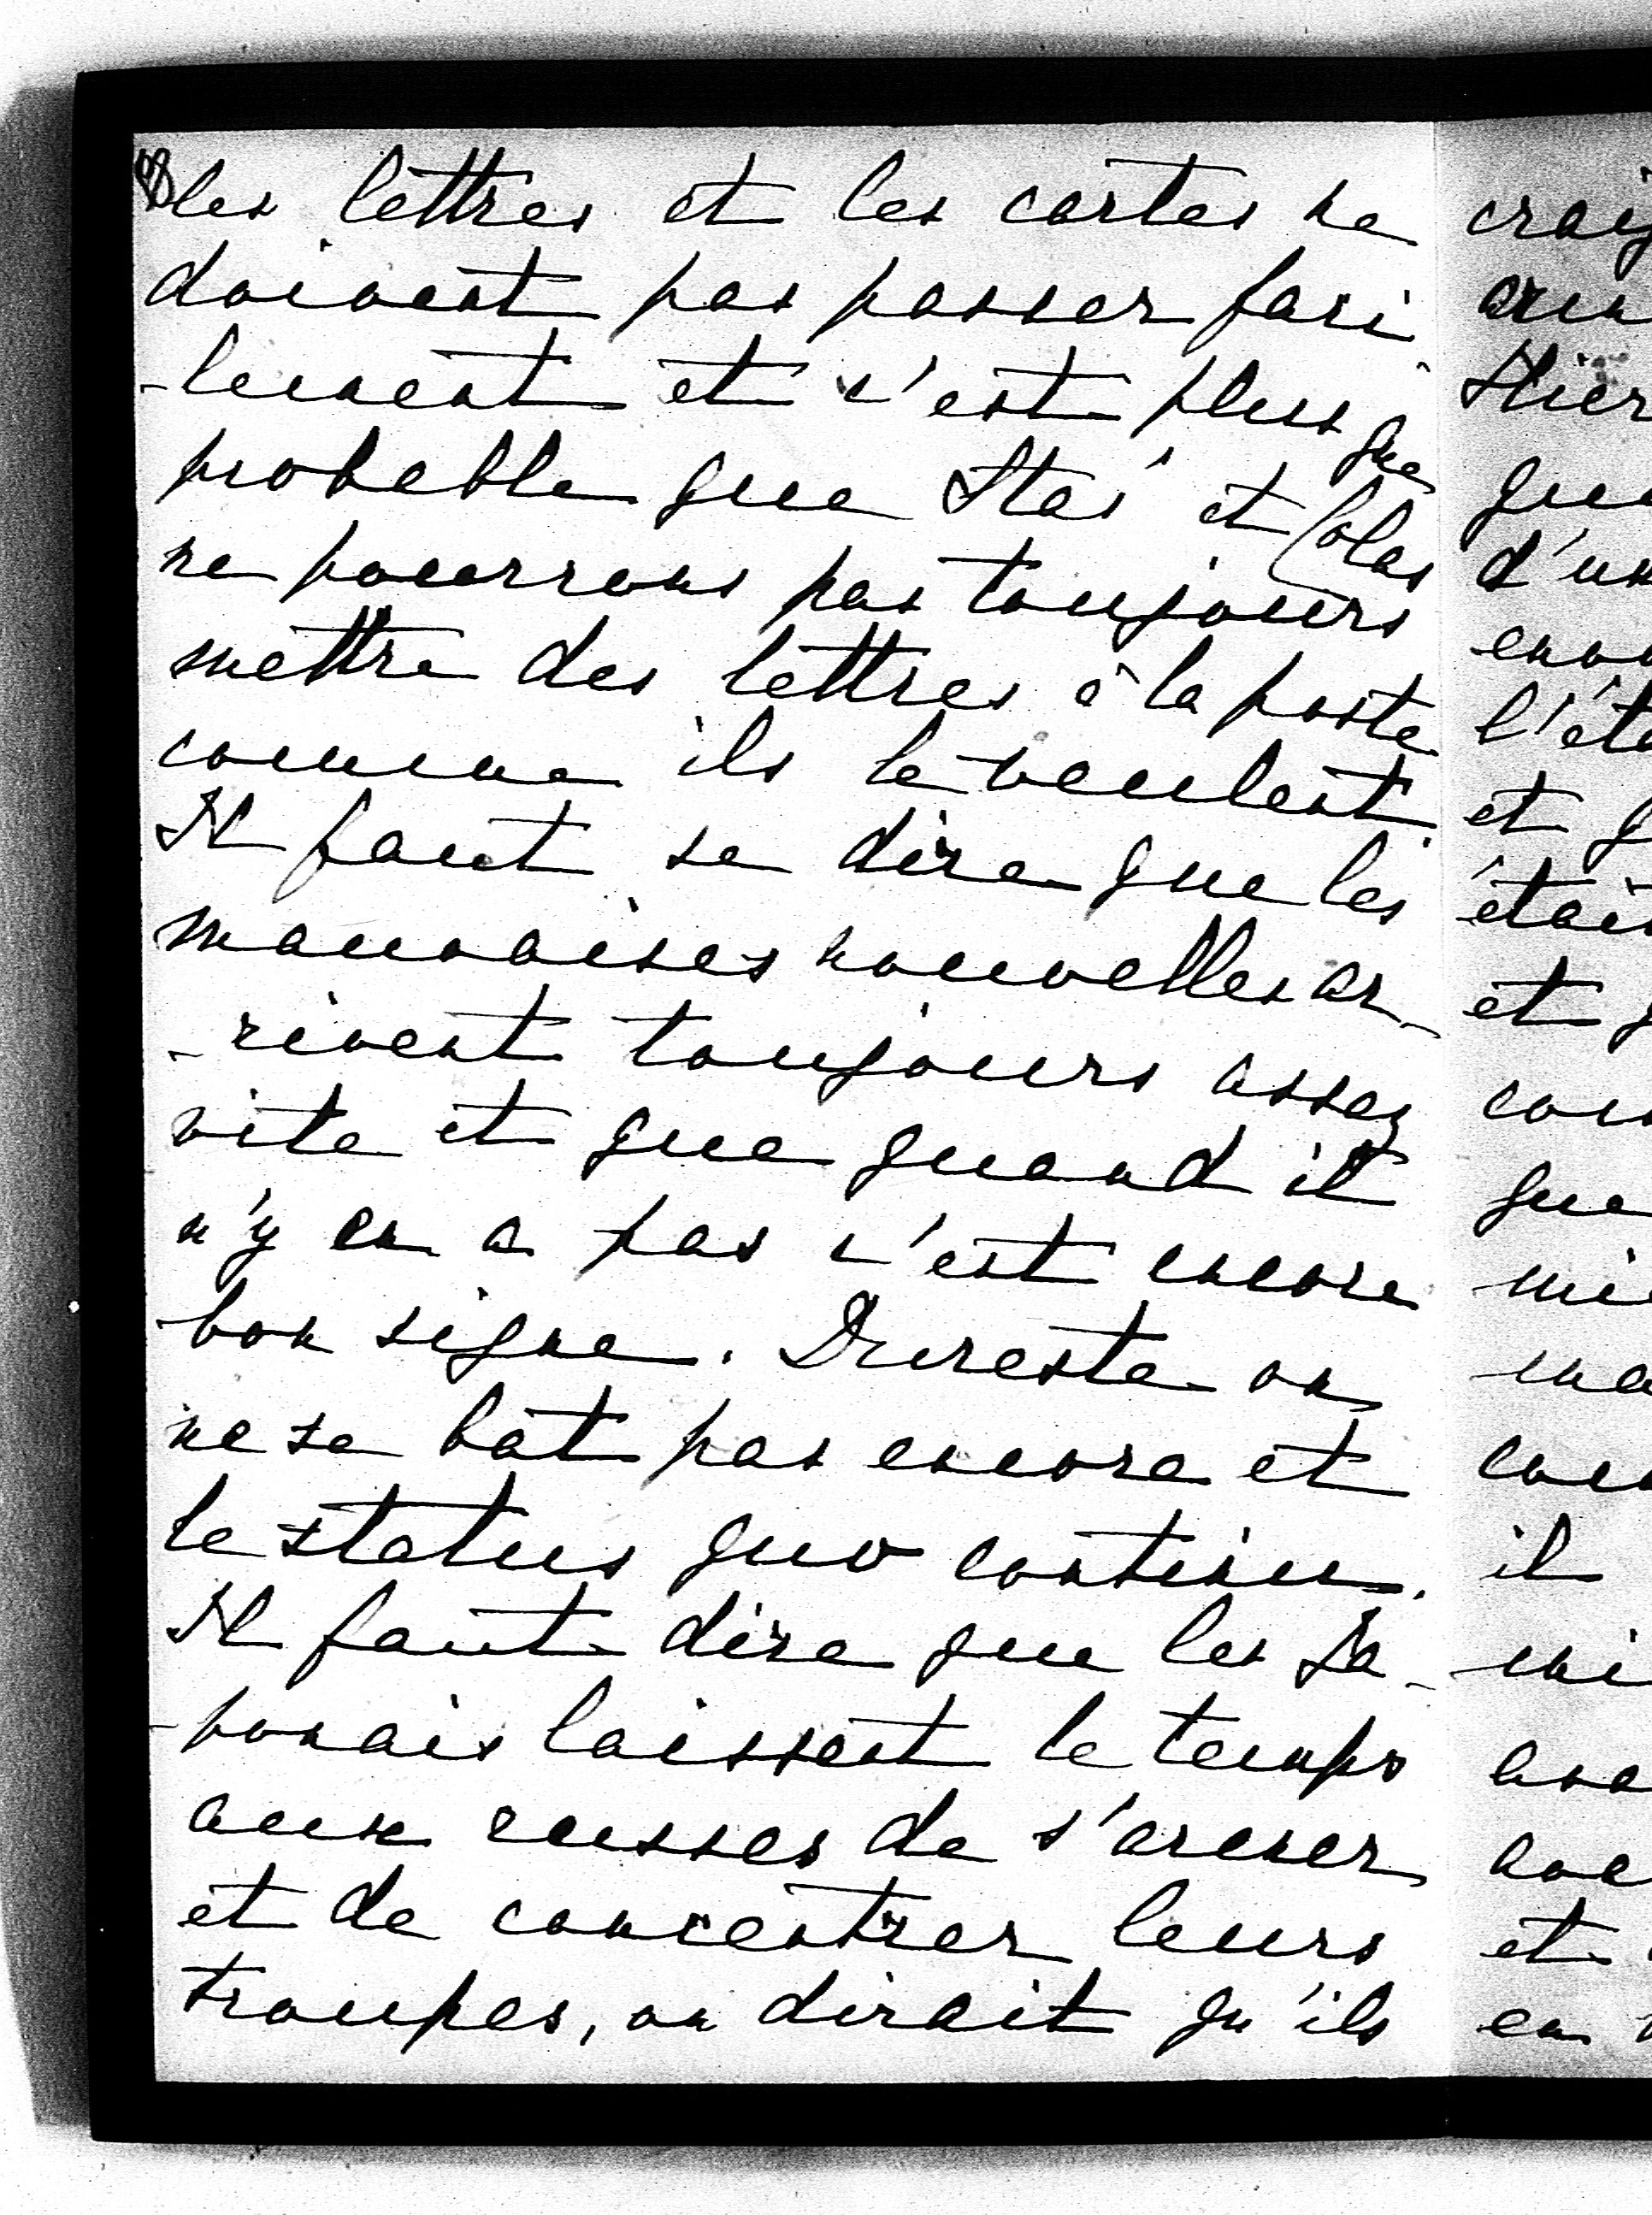 les lettres et les cartes ne
doivent pas passer faci
-lement et c'est plus que
probable que Stas et Colas
ne pourrons pas toujours
mettre des lettres à la poste
comme ils le veulent.
Il faut se dire que les
mauvaises nouvelles ar-
-rivent toujours assez
vite et que quand il
n'y en a pas c'est encore
bon signe. Dureste on
ne se bat pas encore et
le status quo continu.
Il faut dire que les Ja-
-ponais laissent le temps
aux russes de s'armer
et de concentrer leurs
troupes, on dirait qu'ils
Hier
et
il
et
en